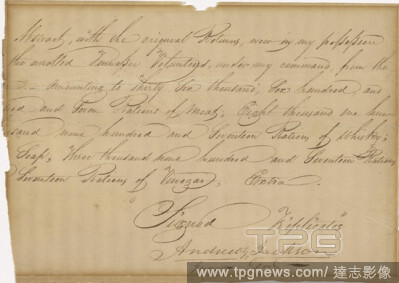 Abstract, with the original Returns, now in my possession
the enrolled Tennessee Volunteers, under my command, from the
amounting to Thirty Six thousand, Six hundred and
and Four Rations of Meat, Eight thousand one hun
sand nine hundred and Seventeen Rations of Whiskey,
Soap, Three thousand nine hundred and Seventeen Rations
Seventeen Rations of Vinegar, Extra.
Signed Triplicates
Andrew Jackson
TPG
www.tpgnews.com / 達志影像